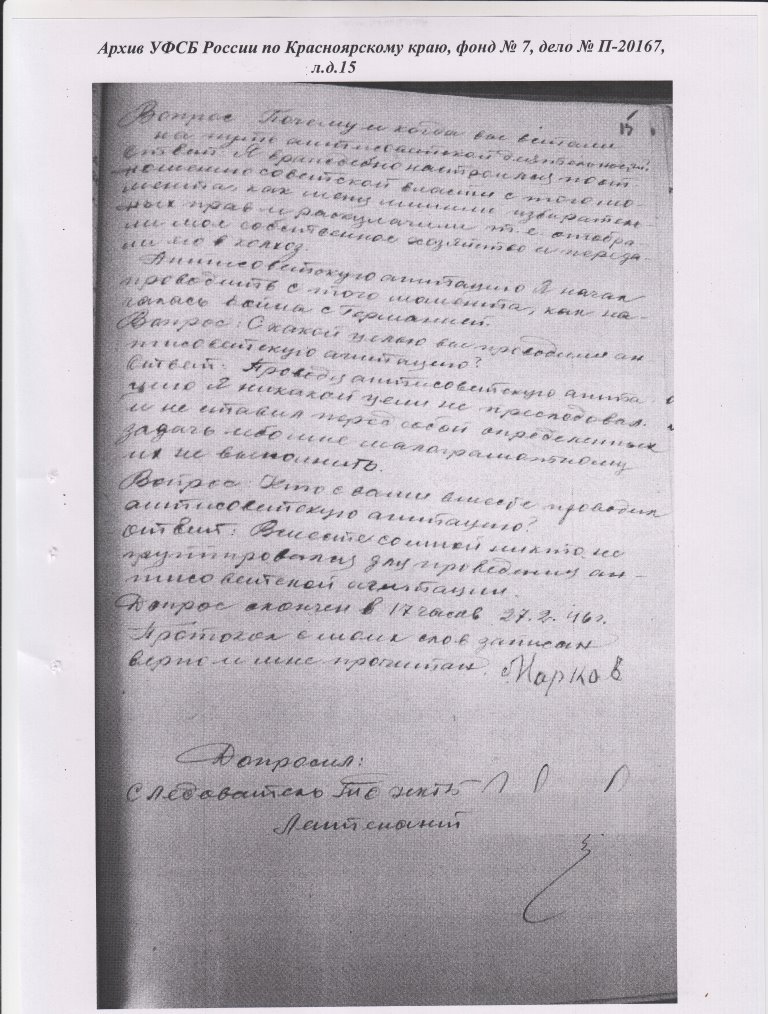 Архив УФСБ России по Красноярскому краю, фонд № 7, дело № П-20167,
л.д.15
15
Вопрос Почему и когда вы встали
на путь антисоветской деятельности?
Ответ Я враждебно настроился по от
ношению советской власти с того мо-
мента, как меня лишили избиратель-
ных прав и раскулачили т.е. отобра
ли мое собственное хозяйство и переда-
ли его в колхоз.
Антисоветскую агитацию Я начал
проводить с того момента, как на-
чалась война с Германией.
Вопрос: С какой целью вы проводили ан
тисоветскую агитацию?
Ответ: Проводя антисоветскую агита
цию Я никакой цели не преследовал
и не ставил перед собой определенных
задач ибо мне малограмотному
их не выполнить.
Вопрос: Кто с вами вместе проводил
антисоветскую агитацию?
Ответ: Вместе со мной никто не
группировался для проведения ан-
тисоветской агитации.
Допрос окончен в 17 часов 27.2.46г.
Протокол с моих слов записан
верно и мне прочитан. Марков
Допросил:
Следователь
Лейтенант